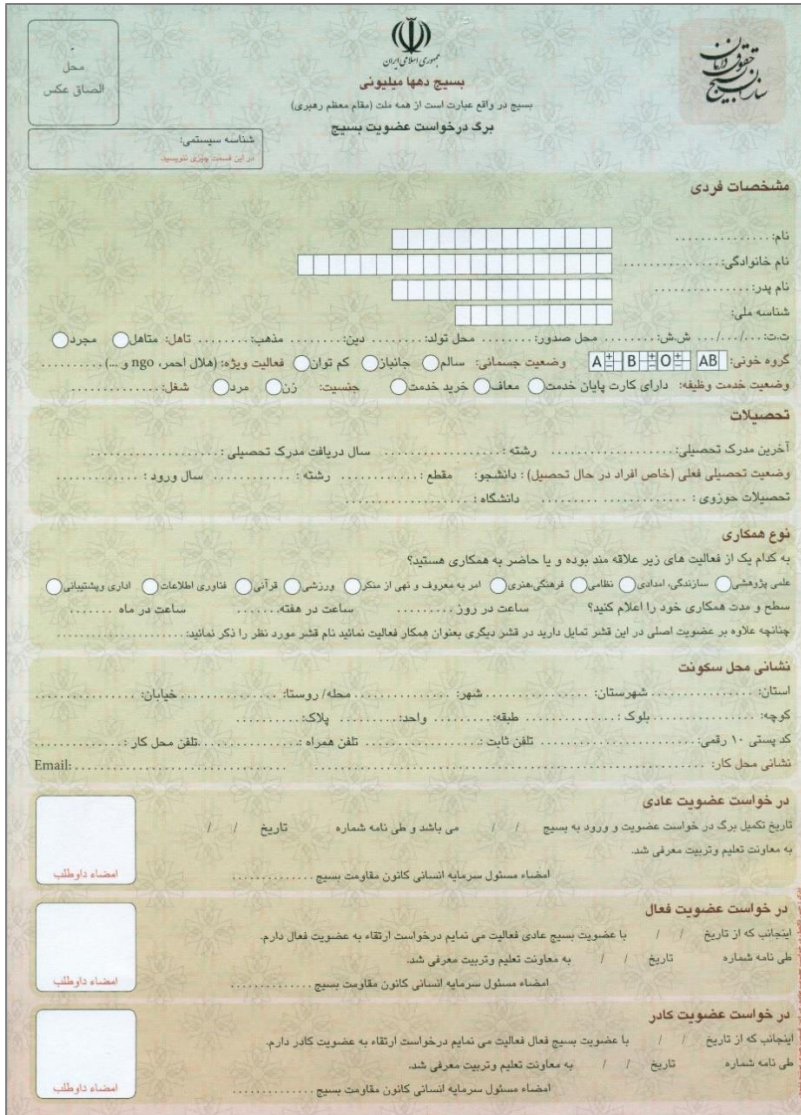 محل
الصاق عکس
جمهوری اسلامی ایران
بسیج دهها میلیونی
بسیج در واقع عبارت است از همه ملت (مقام معظم رهبری)
برگ درخواست عضویت بسیج
سازمان بسیج حقوقدانان
شناسه سیستمی:
در این قسمت چیزی ننویسید
مشخصات فردی
نام: ...............
نام خانوادگی: ...............
نام پدر: ...............
شناسه ملی:
ت.ت: .../.../... ش.ش: ........ محل صدور: ........ محل تولد: ........ دین: ........ مذهب: ........ تاهل: متاهل مجرد
گروه خونی: A ± B ± O ± AB وضعیت جسمانی: سالم جانباز کم توان فعالیت ویژه: (هلال احمر، ngo و ...) ..........
وضعیت خدمت وظیفه: دارای کارت پایان خدمت معاف خرید خدمت جنسیت: زن مرد شغل: ...............
تحصیلات
آخرین مدرک تحصیلی: ............... رشته: ............... سال دریافت مدرک تحصیلی: ...............
وضعیت تحصیلی فعلی (خاص افراد در حال تحصیل): دانشجو: مقطع: ............ رشته: ............ سال ورود: ............
تحصیلات حوزوی: ............... دانشگاه: ...............
نوع همکاری
به کدام یک از فعالیت های زیر علاقه مند بوده و یا حاضر به همکاری هستید؟
علمی پژوهشی سازندگی، امدادی نظامی فرهنگی،هنری امر به معروف و نهی از منکر ورزشی قرآنی فناوری اطلاعات اداری وپشتیبانی
سطح و مدت همکاری خود را اعلام کنید؟ ساعت در روز ......... ساعت در هفته ....... ساعت در ماه .......
چنانچه علاوه بر عضویت اصلی در این قشر تمایل دارید در قشر دیگری بعنوان همکار فعالیت نمائید نام قشر مورد نظر را ذکر نمائید: ...............
نشانی محل سکونت
استان: ............... شهرستان: ............... شهر: ............... محله/ روستا: ............... خیابان: ...............
کوچه: ............... بلوک: ............ طبقه: ......... واحد: ......... پلاک: ............
کد پستی ۱۰ رقمی: ............... تلفن ثابت: ............... تلفن همراه: ............... تلفن محل کار: ...............
نشانی محل کار: ............................................. Email: ..............................
در خواست عضویت عادی
تاریخ تکمیل برگ در خواست عضویت و ورود به بسیج / / می باشد و طی نامه شماره تاریخ / /
به معاونت تعلیم وتربیت معرفی شد.
امضاء مسئول سرمایه انسانی کانون مقاومت بسیج ..............
امضاء داوطلب
در خواست عضویت فعال
اینجانب که از تاریخ / / با عضویت بسیج عادی فعالیت می نمایم درخواست ارتقاء به عضویت فعال دارم.
طی نامه شماره تاریخ / / به معاونت تعلیم وتربیت معرفی شد.
امضاء مسئول سرمایه انسانی کانون مقاومت بسیج ..............
امضاء داوطلب
در خواست عضویت کادر
اینجانب که از تاریخ / / با عضویت بسیج فعال فعالیت می نمایم درخواست ارتقاء به عضویت کادر دارم.
طی نامه شماره تاریخ / / به معاونت تعلیم وتربیت معرفی شد.
امضاء مسئول سرمایه انسانی کانون مقاومت بسیج ..............
امضاء داوطلب